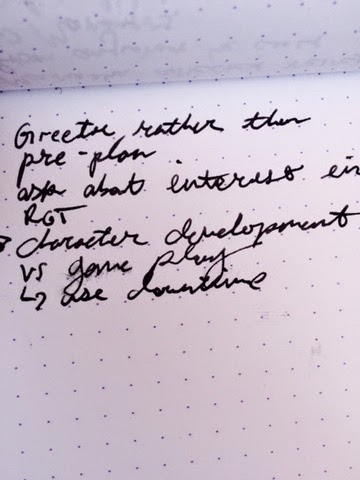 Greetor rather then
pre-plan
ask about interest in
RGT
character development
vs game play
↳ use downtime